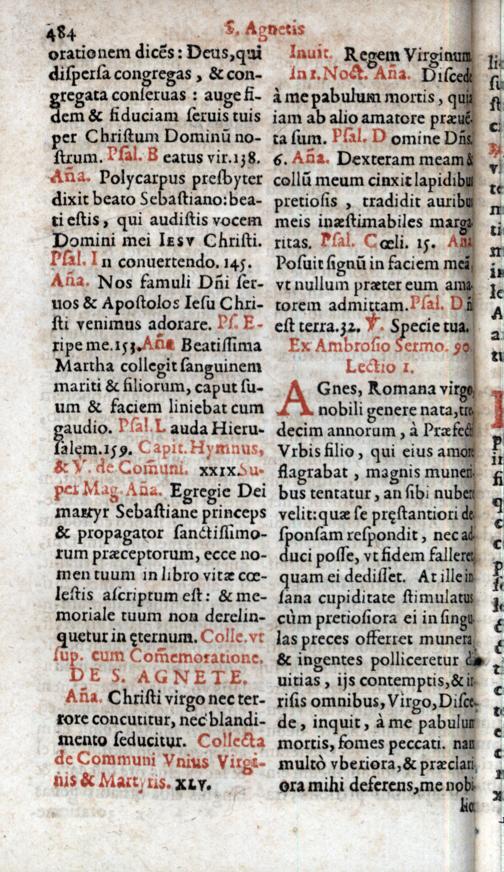 484
S. Agnetis
orationem dicẽs : Deus, qui
dispersa congregas , & con-
gregata conseruas : auge fi-
dem & fiduciam seruis tuis
per Christum Dominũ no-
strum. Psal. B eatus vir. 138.
Aña. Polycarpus presbyter
dixit beato Sebastiano: bea-
ti estis , qui audistis vocem
Domini mei IESV Christi.
Psal. I n conuertendo. 145.
Aña. Nos famuli Dñi ser-
uos & Apostolos Iesu Chri-
sti venimus adorare. Ps. E-
ripe me. 153. Aña Beatissima
Martha collegit sanguinem
mariti & filiorum, caput su-
um & faciem liniebat cum
gaudio. Psal. L auda Hieru-
salem. 159. Capit. Hymnus,
& V. de Comũni. XXIX. Su-
per Mag. Aña. Egregie Dei
martyr Sebastiane princeps
& propagator sanctissimo-
rum præceptorum, ecce no-
men tuum in libro vitæ cœ-
lestis ascriptum est : & me-
moriale tuum non derelin-
quetur in ęternum. Colle. vt
sup. cum Com̃emoratione.
DE S. AGNETE.
Aña. Christi virgo nec ter-
rore concutitur, nec blandi-
mento seducitur. Collecta
de Communi Vnius Virgi-
nis & Martyris. XLV.
Inuit. Regem Virginum
In 1. Noct. Aña. Discede
à me pabulum mortis , quia
iam ab alio amatore præuẽ-
ta sum. Psal. D omine Dñs.
6. Aña. Dexteram meam &
collũ meum cinxit lapidibus
pretiosis , tradidit auribus
meis inæstimabiles marga-
ritas. Psal. Cœli. 15. Aña
Posuit signũ in faciem meã
vt nullum præter eum ama-
torem admittam. Psal. Dñi
est terra. 32. ℣. Specie tua.
Ex Ambrosio Sermo. 90
Lectio 1.
AGnes, Romana virgo,
nobili genere nata, tre-
decim annorum , à Præfecti
Vrbis filio , qui eius amore
flagrabat , magnis muneri-
bus tentatur , an sibi nubere
velit: quæ se pręstantiori de-
sponsam respondit , nec ad-
duci posse, vt fidem falleret
quam ei dedisset. At ille in-
sana cupiditate stimulatus
cùm pretiosiora ei in singu-
las preces offerret munera
& ingentes polliceretur di-
uitias , ijs contemptis, & ir-
risis omnibus, Virgo, Disce-
de , inquit , à me pabulum
mortis, fomes peccati. nam
multò vberiora, & præclari-
ora mihi deferens, me nobi-
lio